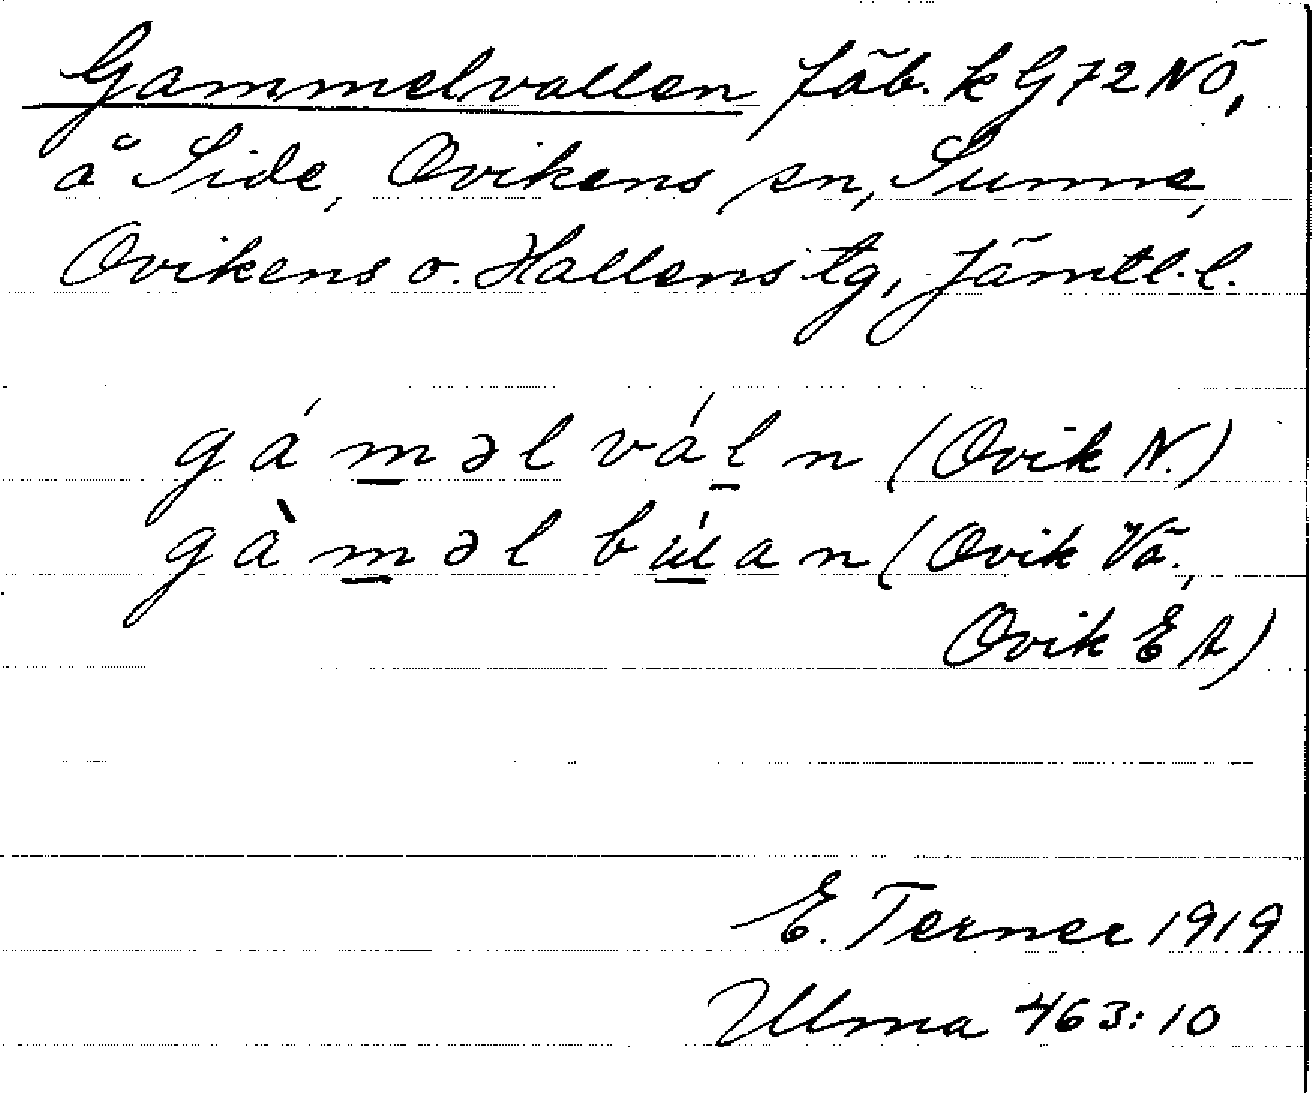 Gammelvallen fäb. k G72 NÖ,
å Side, Ovikens sn, Sunne,
Ovikens o. Hallens tg, Jämtl. l.
gáməl váln (Ovik N.)
gàməl búan (Ovik Vä.,
Ovik EA)
E. Terner 1919
Ulma 463:10